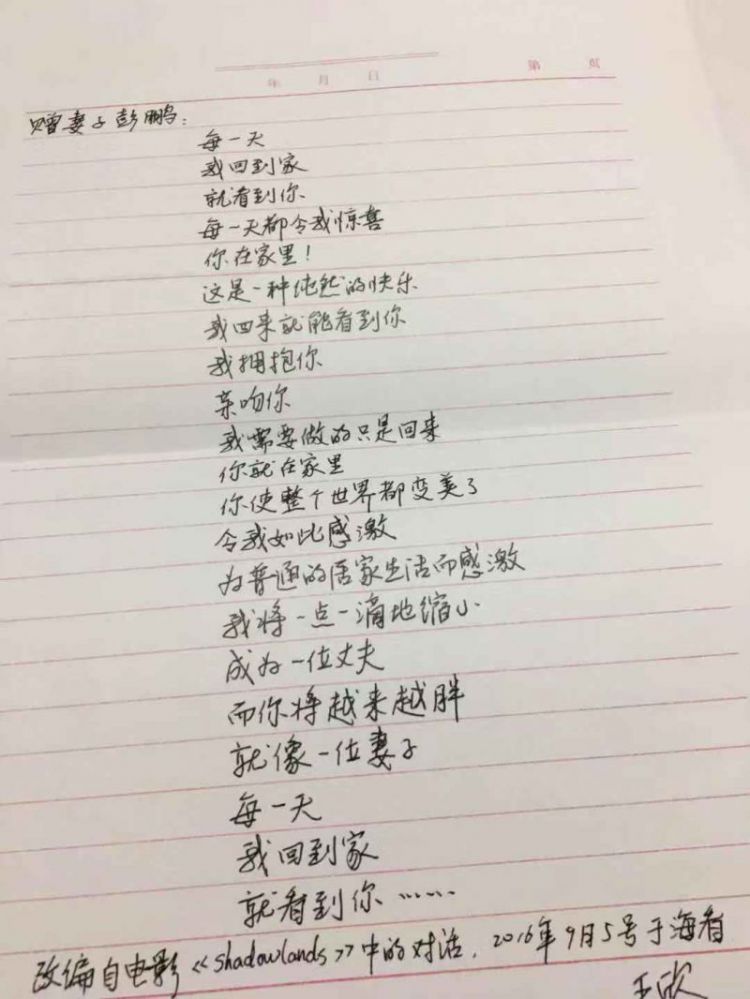 年 月 日
第 页
赠妻子彭鹏：
每一天
我回到家
就看到你
每一天都令我惊喜
你在家里！
这是一种纯然的快乐
我回来就能看到你
我拥抱你
亲吻你
我需要做的只是回来
你就在家里
你使整个世界都变美了
令我如此感激
为普通的居家生活而感激
我将一点一滴地缩小
成为一位丈夫
而你将越来越胖
就像一位妻子
每一天
我回到家
就看到你……
改编自电影《shadowlands》中的对话，2016年9月5号于海淀
王欣